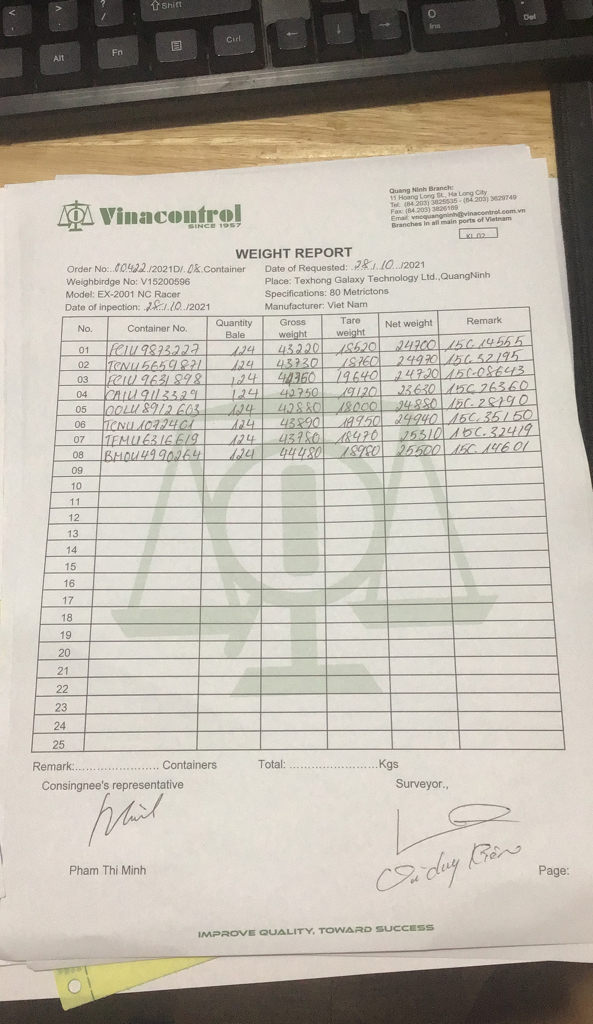 <
>
?
/
⇧Shift
Alt
Fn
Ctrl
←
↓
→
0
Ins
Del
Vinacontrol
SINCE 1957
Quang Ninh Branch:
11 Hoang Long St., Ha Long City
Tel: (84.203) 3825535 - (84.203) 3629749
Fax: (84.203) 3826169
Email: vncquangninh@vinacontrol.com.vn
Branches in all main ports of Vietnam
KL 02
WEIGHT REPORT
Order No:.00422./2021D/.08.Container Date of Requested: 28/10./2021
Weighbirdge No: V15200596 Place: Texhong Galaxy Technology Ltd.,QuangNinh
Model: EX-2001 NC Racer Specifications: 80 Metrictons
Date of inpection: 28/10./2021 Manufacturer: Viet Nam
No. Container No. Quantity Bale Gross weight Tare weight Net weight Remark
01 FCIU9873227 124 43220 18520 24700 15C.14555
02 TCNU5659871 124 43730 18760 24970 15C.32195
03 FCIU9631898 124 19640 24720 15C-08643
04 CAIU9113329 124 42750 19120 23630 15C.26360
05 OOLU8912603 124 42880 18000 24880 15C.28190
06 TCNU1072401 124 43890 18950 24940 15C.35150
07 TEMU6316619 124 43780 18470 25310 15C.32419
08 BMOU4990264 124 44480 18980 25500 15C.14601
09
10
11
12
13
14
15
16
17
18
19
20
21
22
23
24
25
Remark:........................ Containers Total: ..........................Kgs
Consingnee's representative Surveyor.,
Pham Thi Minh
Page:
IMPROVE QUALITY, TOWARD SUCCESS